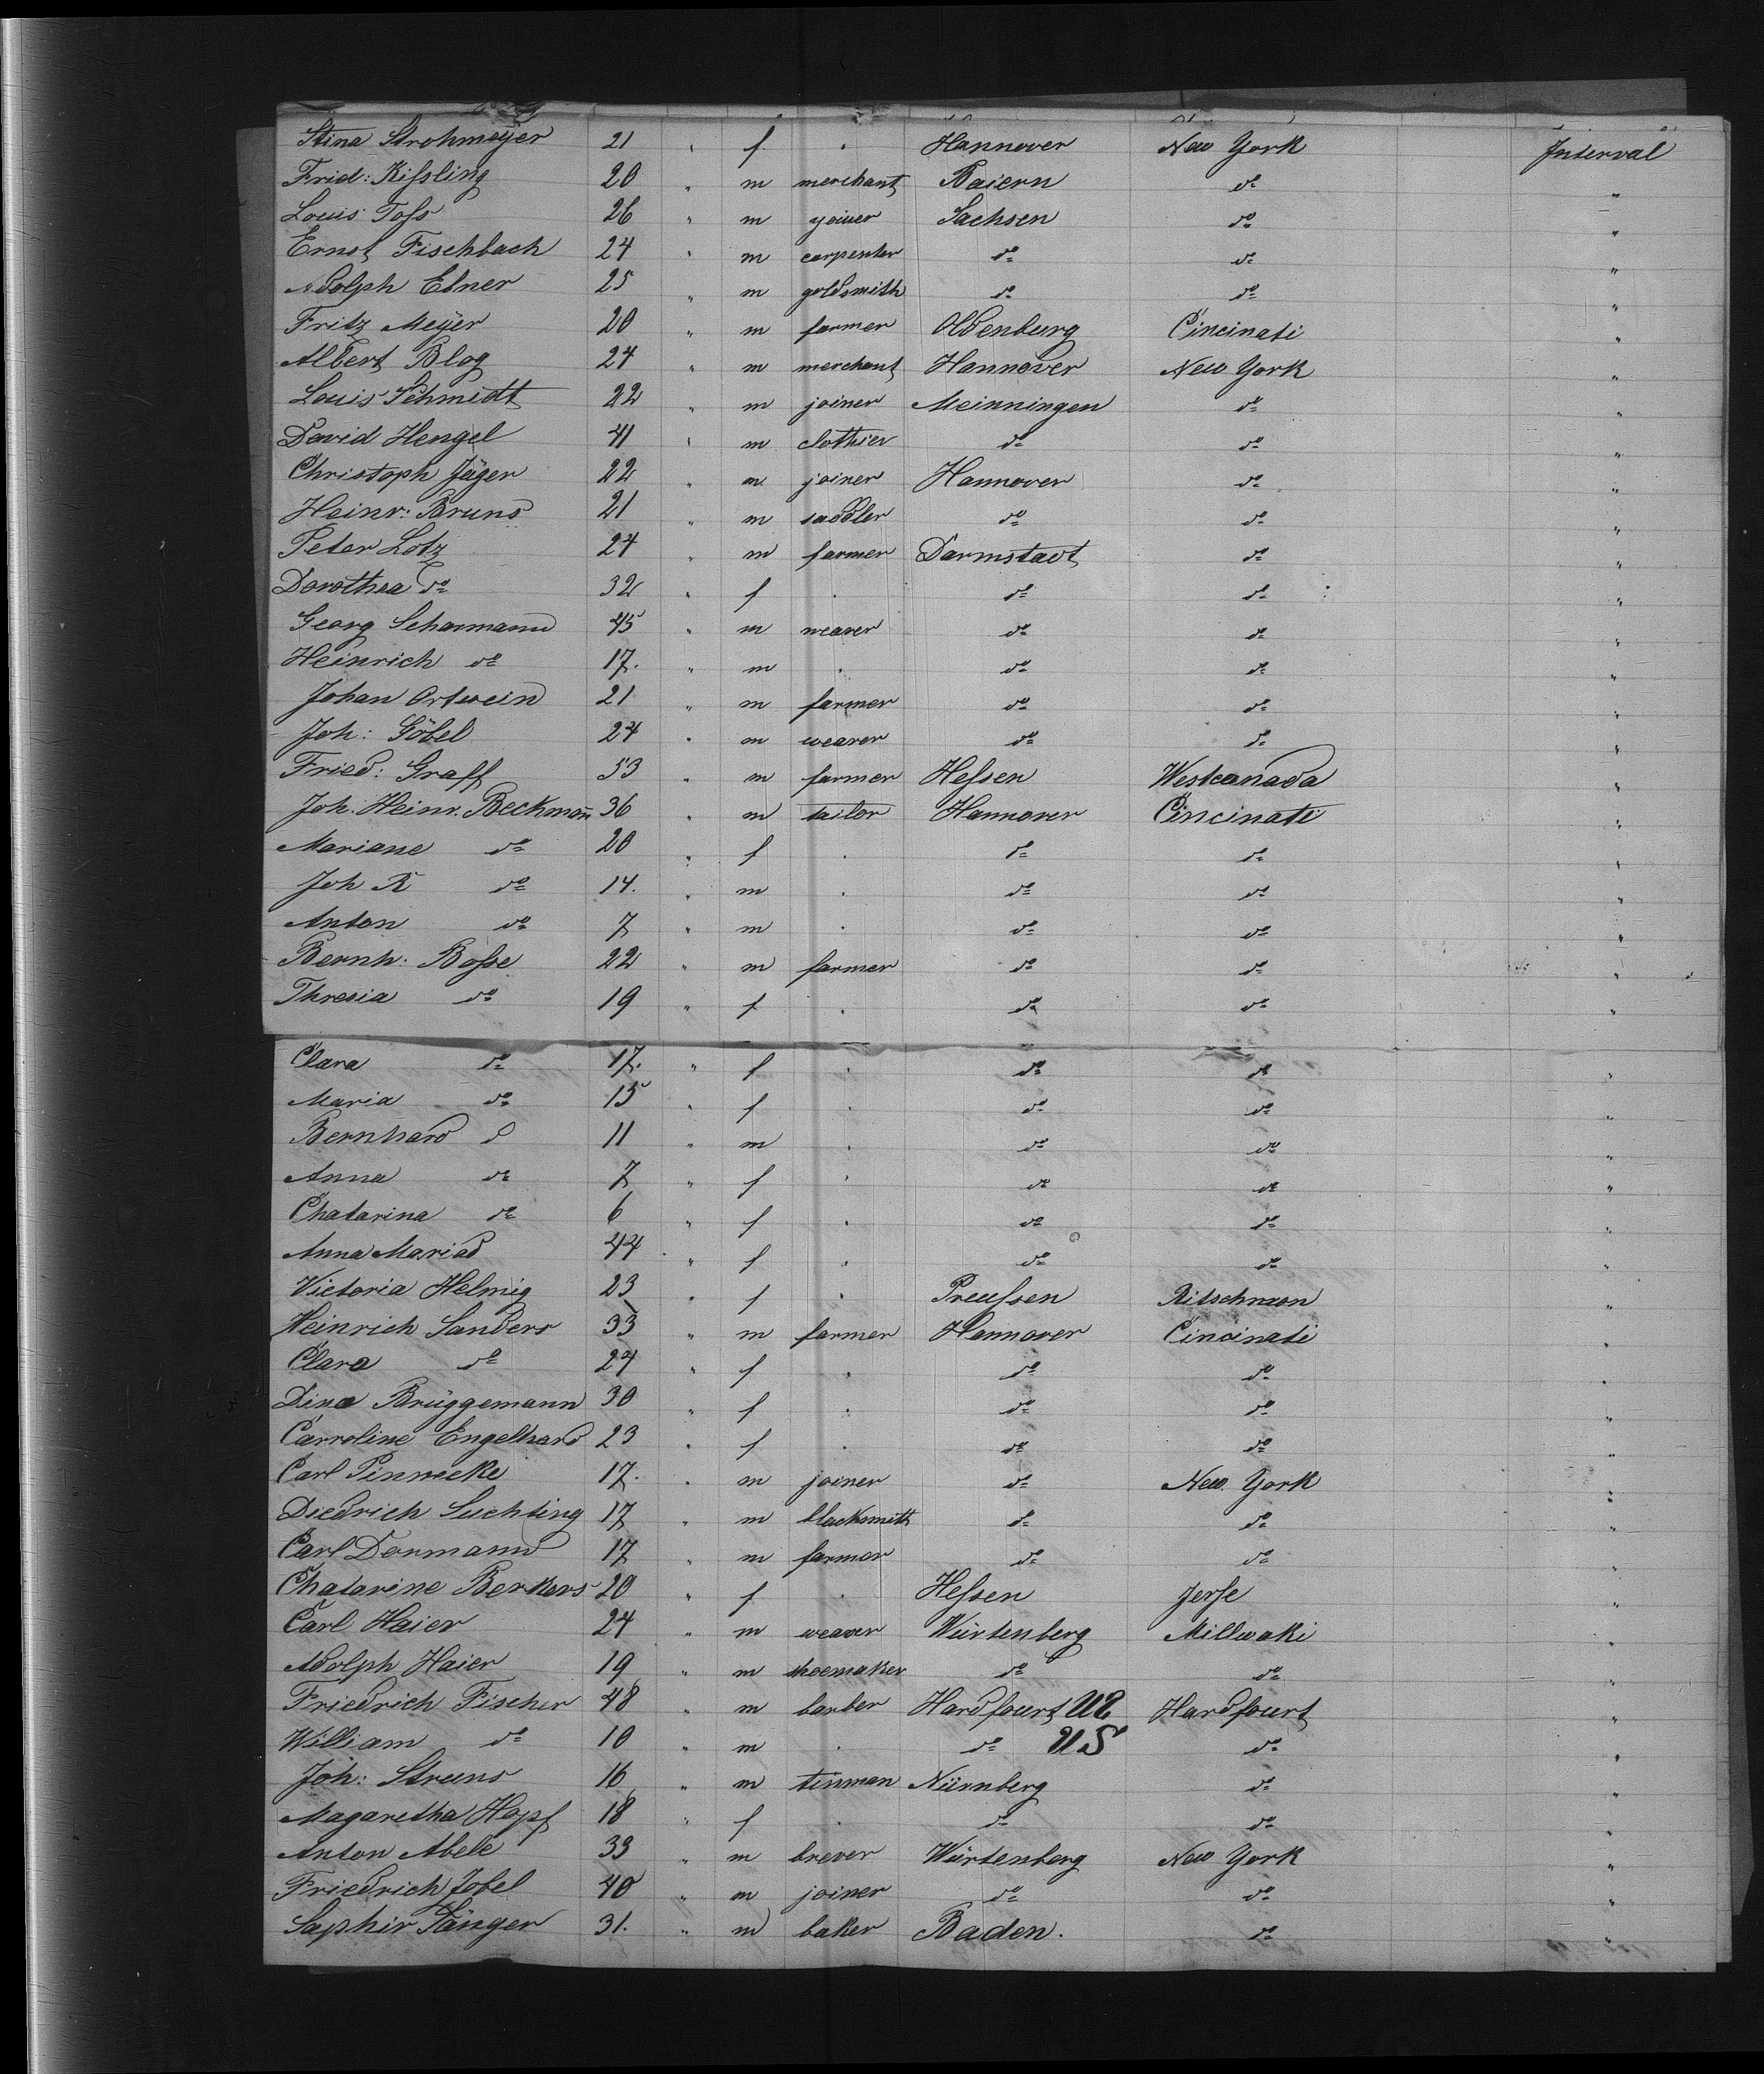 Stina Strohmeyer 21 " f " Hannover New York Interval
Frid: Kiſsling 20 " m merchant Baiern do "
Louis Toſs 26 " m joiner Sachsen do "
Ernst Fischbach 24 " m carpenter do do "
Adolph Ebner 25 " m goldsmith do do "
Fritz Meÿer 20 " m farmer Oldenburg Cincinati "
Albert Blog 24 " m merchant Hannover New York "
Louis Schmidt 22 " m joiner Meinningen do "
David Hengel 41 " m clothier do do "
Christoph Jäger 22 " m joiner Hannover do "
Heinr: Bruns 21 " m saddler do do "
Peter Lotz 24 " m farmer Darmstadt do "
Dorothea do 32 " f . do do "
Georg Scharmann 45 " m weaver do do "
Heinrich do 17. " m . do do "
Johan Ortwein 21 " m farmer do do "
Joh: Göbel 24 " m weaver do do "
Fried: Graff 53 " m farmer Heſsen Westcanada "
Joh. Heinr. Beckmañ 36 " m tailor Hannover Cincinati "
Mariane do 20 " f . do do "
Joh R do 14. " m . do do "
Anton do 7 " m . do do "
Bernh: Boſse 22 " m farmer do do "
Thresia do 19 " f . do do "
Clara do 17. " f . do do "
Maria do 15 " f . do do "
Bernhard d 11 " m . do do "
Anna do 7 " f . do do "
Chatarina do 6 " f . do do "
Anna Maria d 44 " f . do do "
Victoria Helmig 23 " f . Preuſsen Ritschmon "
Heinrich Sanders 33 " m farmer Hannover Cincinati "
Clara do 24 " f . do do "
Dina Brüggemann 30 " f . do do "
Carroline Engelhard 23 " f . do do "
Carl Pinnecke 17. " m joiner do New York "
Diedrich Suchting 17 " m blacksmith do do "
Carl Dormann 17 " m farmer do do "
Chatarine Berkers 20 " f . Heſsen Jerſe "
Carl Haier 24 " m weaver Würtenberg Millwaki "
Adolph Haier 19 " m shoemaker do do "
Friedrich Fischer 48 " m barber Hardfourt US Hardfourt "
William do 10 " m . do US do "
Joh: Struns 16 " m tinman Nürnberg do "
Magaretha Hopf 18 " f . do do "
Anton Abele 33 " m brever Würtenberg New York "
Friedrich Jobel 40 " m joiner do do "
Saphir Sänger 31. " m baker Baden. do "